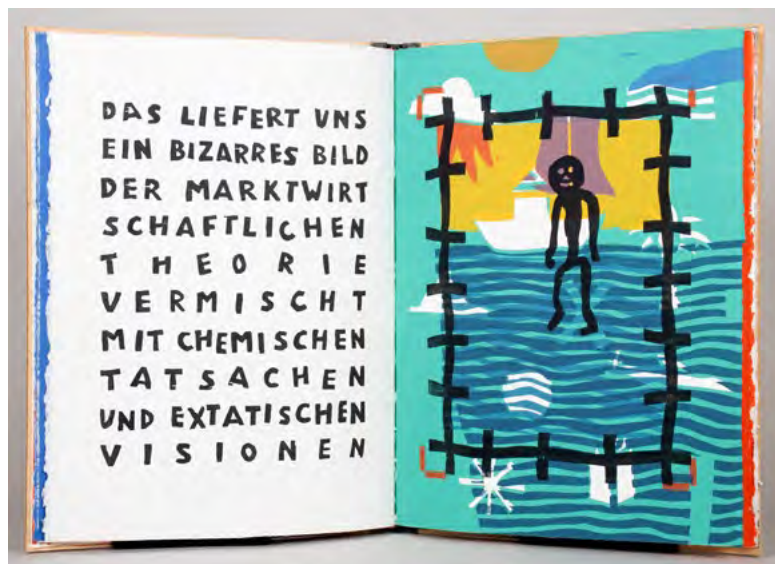 DAS LIEFERT UNS
EIN BIZARRES BILD
DER MARKTWIRT
SCHAFTLICHEN
THEORIE
VERMISCHT
MIT CHEMISCHEN
TATSACHEN
UND EXTATISCHEN
VISIONEN